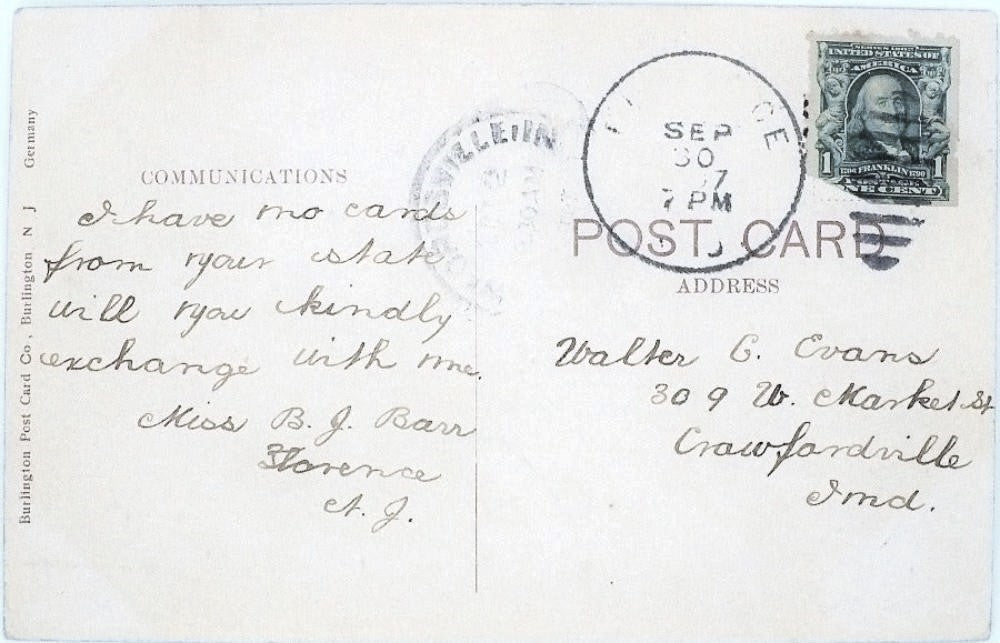 COMMUNICATIONS
I have no cards
from your state
will you kindly
exchange with me.
Miss B. J. Barr
Florence
N. J.
Burlington Post Card Co, Burlington N J Germany
SVILLE, IN
SEP
30
7 PM
SERIES 1902
UNITED STATES OF
AMERICA
1 1706 FRANKLIN 1790 1
POSTAGE
ONE CENT
POST CARD
ADDRESS
Walter C. Evans
309 W. Market St
Crawfordville
Ind.